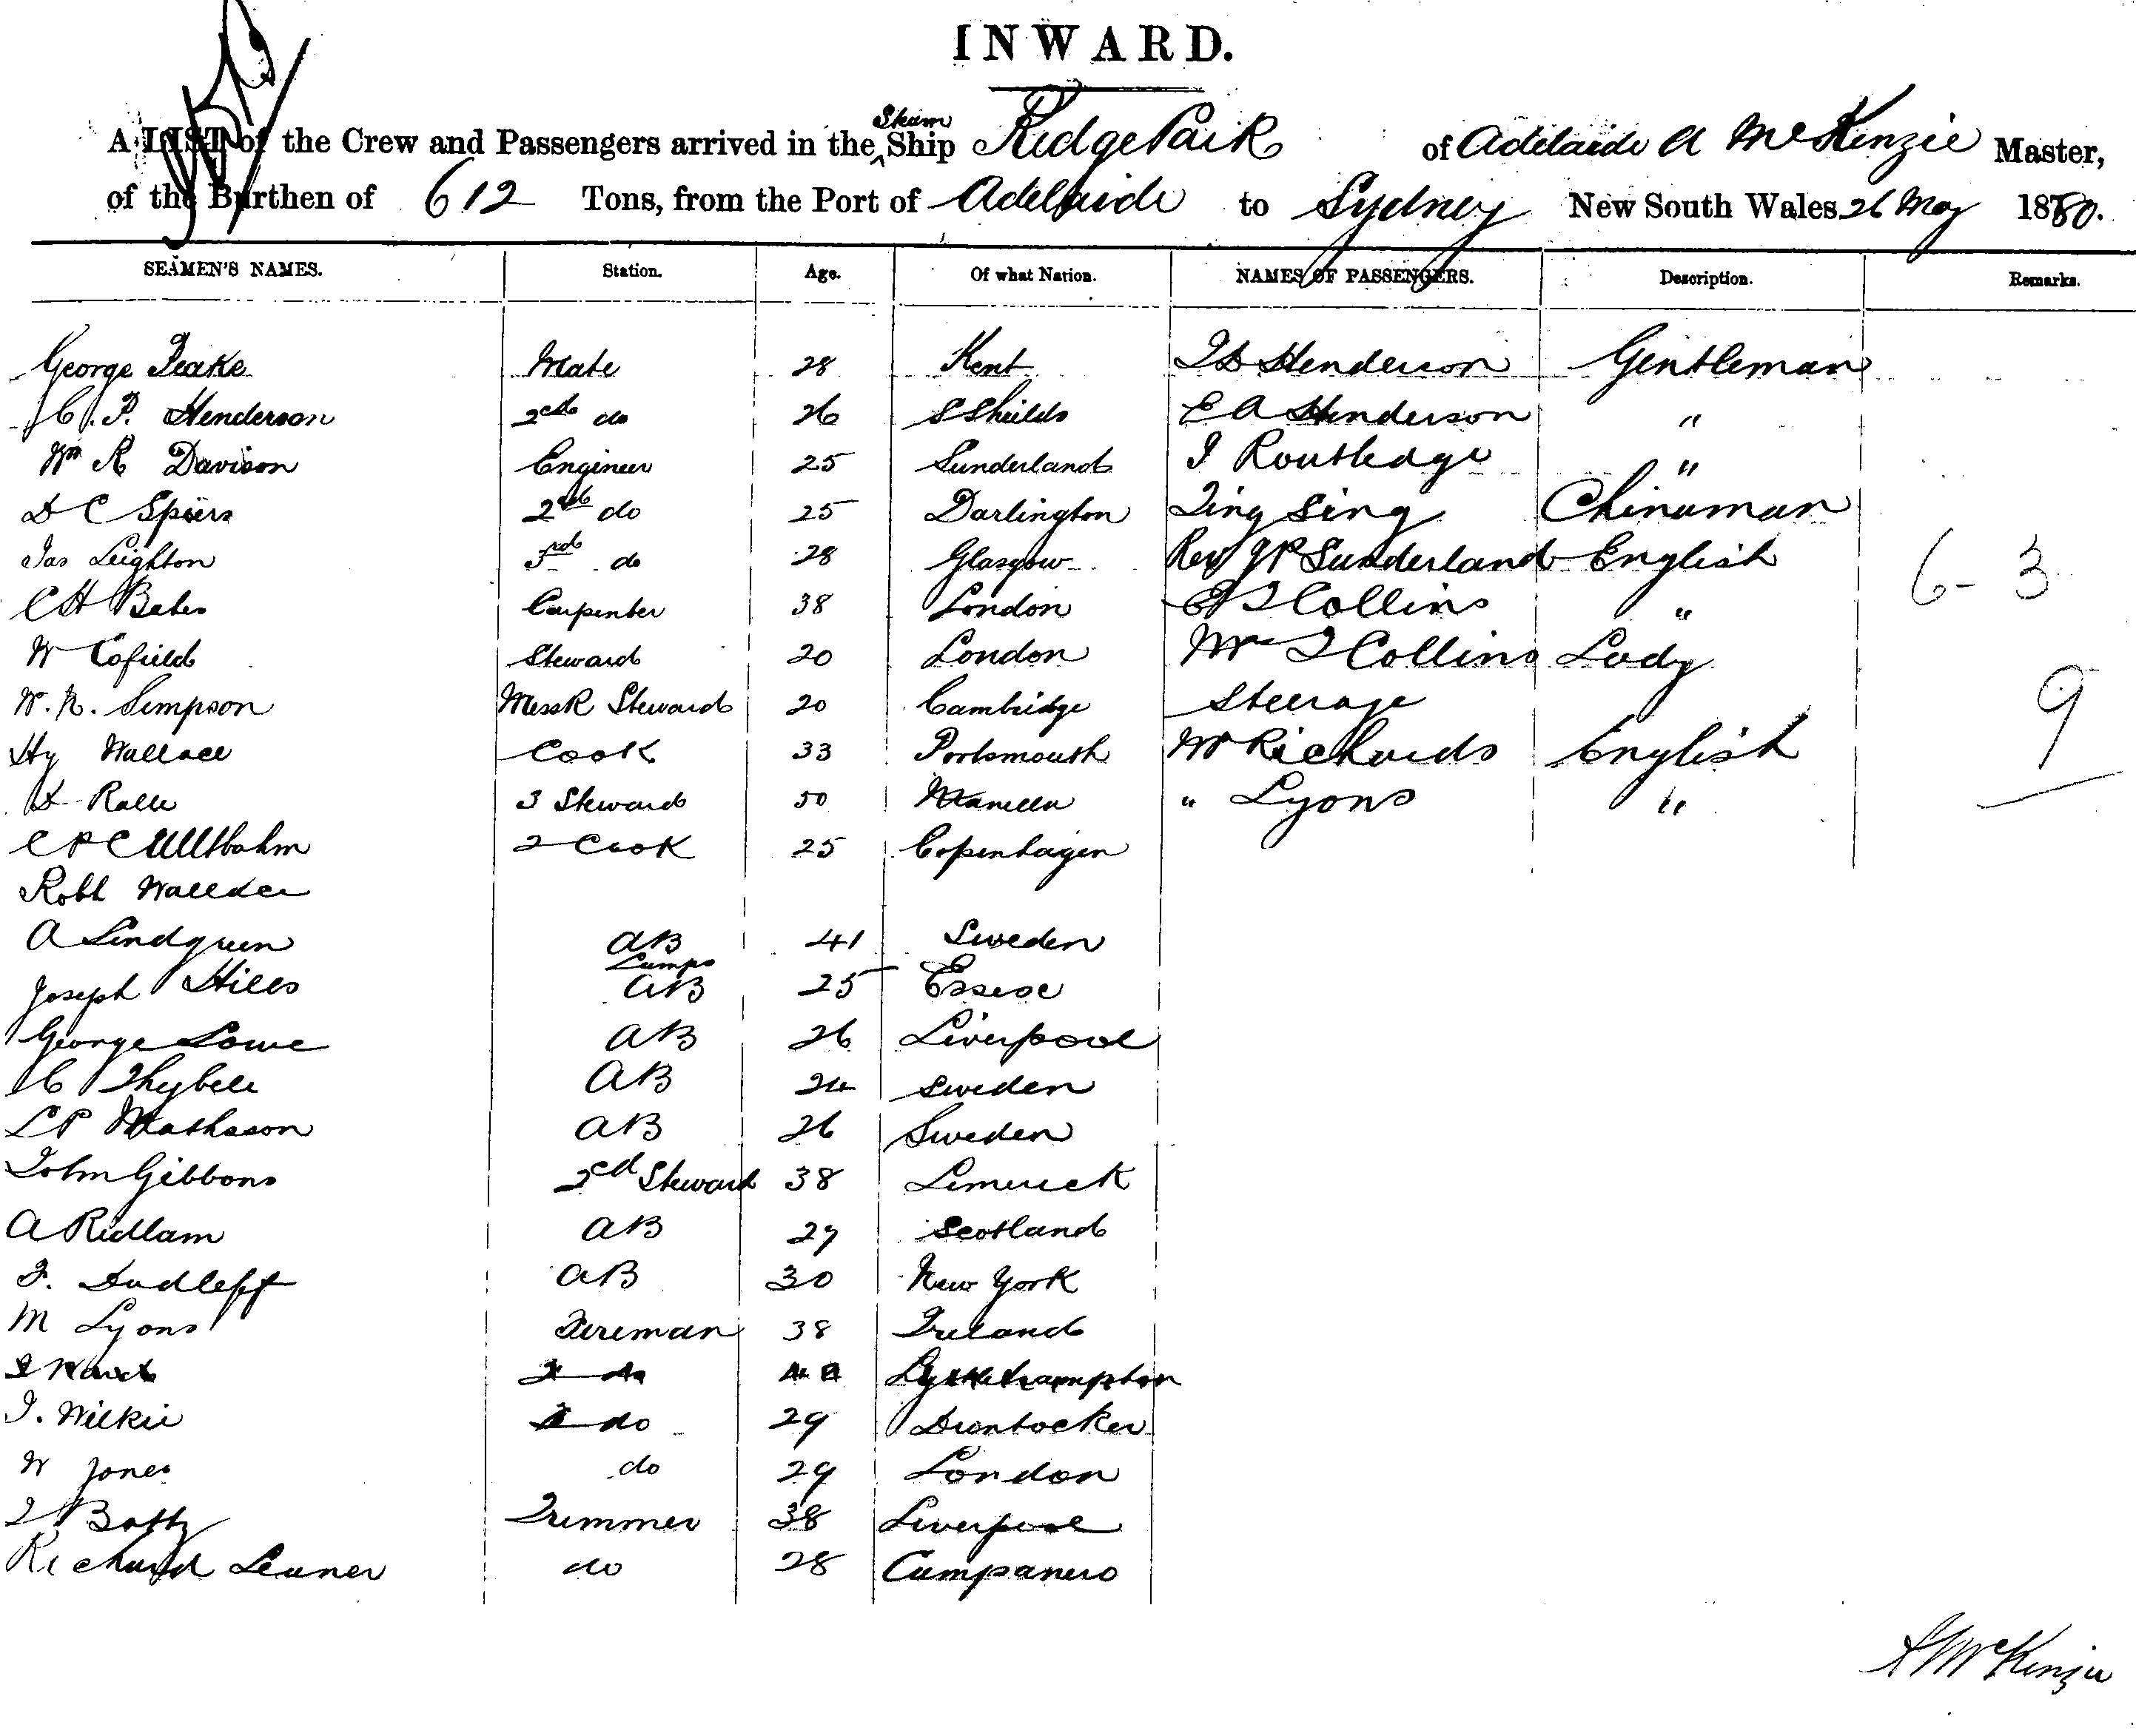 INWARD.
A LIST of the Crew and Passengers arrived in the Steam Ship Ridge Park of Adelaide A McKenzie Master,
of the Burthen of 612 Tons, from the Port of Adelaide to Sydney New South Wales 26 May 1880.
SEAMEN'S NAMES. Station. Age. Of what Nation. NAMES OF PASSENGERS. Description. Remarks.
George Peake Mate 28 Kent Henderson Gentleman
C. P. Henderson 2nd do 26 S Shields E A Henderson "
Wm R Davison Engineer 25 Sunderland J Routledge "
D C Spiers 2nd do 25 Darlington Ting Sing Chinaman
Jas Leighton 3rd do 28 Glasgow Rev J P Sunderland English
C H Bates Carpenter 38 London Collins " 6-3
W Cofield Steward 20 London Mrs T Collins Lady
W. R. Simpson Mess R Steward 20 Cambridge Steerage 9
Hy Wallace Cook 33 Portsmouth Mr Richards English
3 Steward 50 Manella " Lyons "
C P C 2 Cook 25 Copenhagen
Robt
A Lindgreen AB 41 Sweden
Lamps
Joseph Hills AB 25 Essex
George Lowe AB 26 Liverpool
C Thybell AB 24 Sweden
L P Mathsson AB 26 Sweden
John Gibbons 2nd Steward 38 Limerick
A Ridlam AB 29 Scotland
F. Dudleff AB 30 New York
M Lyons Fireman 38 Ireland
do
J. Wilkie do 29
W Jones do 29 London
Batty Trimmer 38 Liverpool
Richard Leaner do 28
A McKenzie